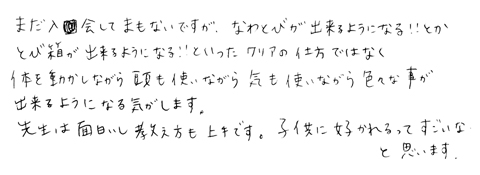 まだ入会してまもないですが、なわとびが出来るようになる!!とか
とび箱が出来るようになる!!といったクリアの仕方ではなく
体を動かしながら頭も使いながら気も使いながら色々な事が
出来るようになる気がします。
先生は面白いし教え方も上手です。子供に好かれるってすごいな
と思います。